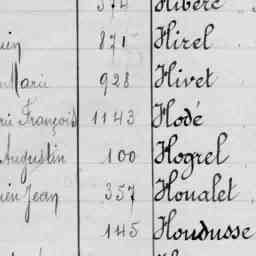 374 Hibère
871 Hirel
Marie 928 Hivet
François 1143 Hodé
Augustin 100 Hogrel
Jean 357 Houalet
145 Houdusse